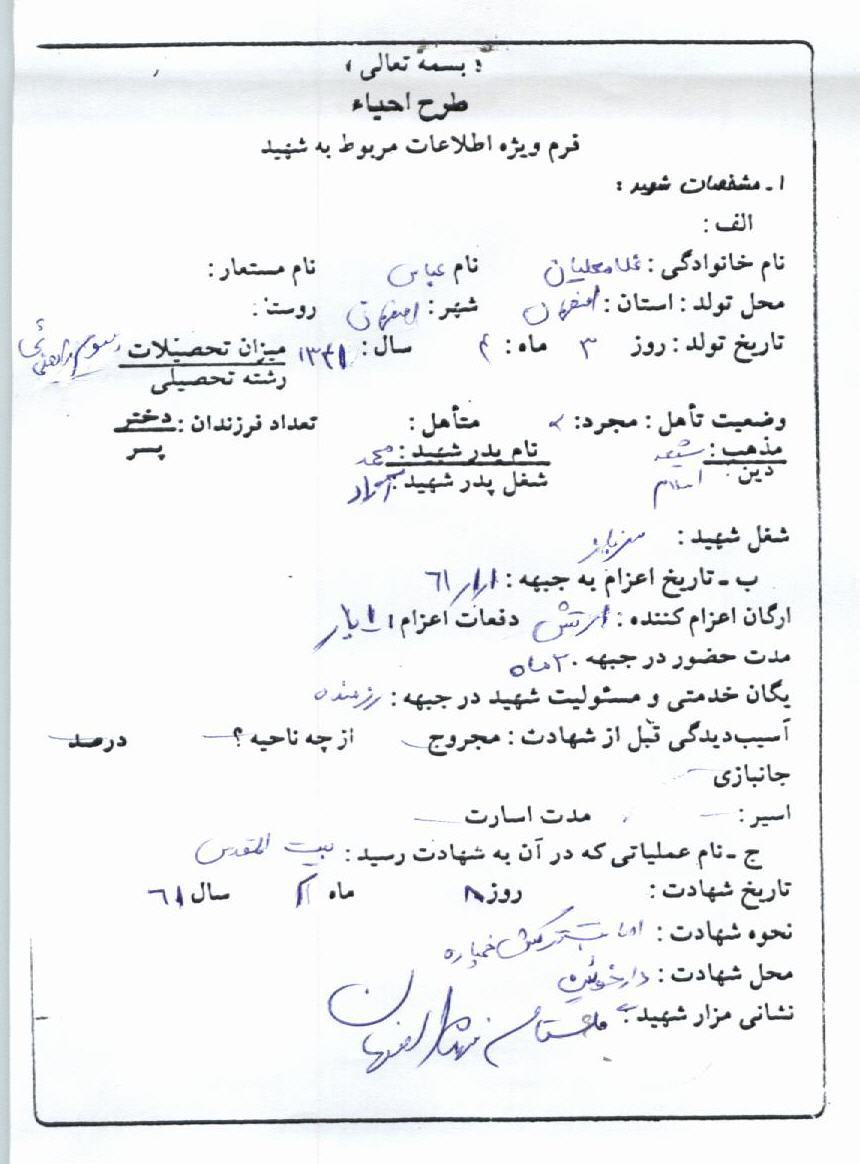 « بسمه تعالی »
طرح احیاء
فرم ویژه اطلاعات مربوط به شهید
۱ ـ مشخصات شهید :
الف :
نام خانوادگی : غلامعلیان نام عباس نام مستعار :
محل تولد : استان : اصفهان شهر : اصفهان روستا :
تاریخ تولد : روز ۳ ماه : ۴ سال : ۱۳۴۱ میزان تحصیلات سوم راهنمائی
رشته تحصیلی
وضعیت تأهل : مجرد : متأهل : تعداد فرزندان : دختر
پسر
مذهب : شیعه نام پدر شهید : محمد
دین : اسلام شغل پدر شهید : آزاد
شغل شهید : سرباز
ب ـ تاریخ اعزام به جبهه : ۶۱/۱/۱
ارگان اعزام کننده : ارتش دفعات اعزام : ۱ بار
مدت حضور در جبهه ۲۰ ماه
یگان خدمتی و مسئولیت شهید در جبهه : رزمنده
آسیب‌دیدگی قبل از شهادت : مجروح از چه ناحیه ؟ درصد
جانبازی
اسیر : مدت اسارت
ج ـ نام عملیاتی که در آن به شهادت رسید : بیت المقدس
تاریخ شهادت : روز ماه سال ۶۱
نحوه شهادت : اصابت ترکش خمپاره
محل شهادت : دارخوئین
نشانی مزار شهید : گلستان شهدا اصفهان